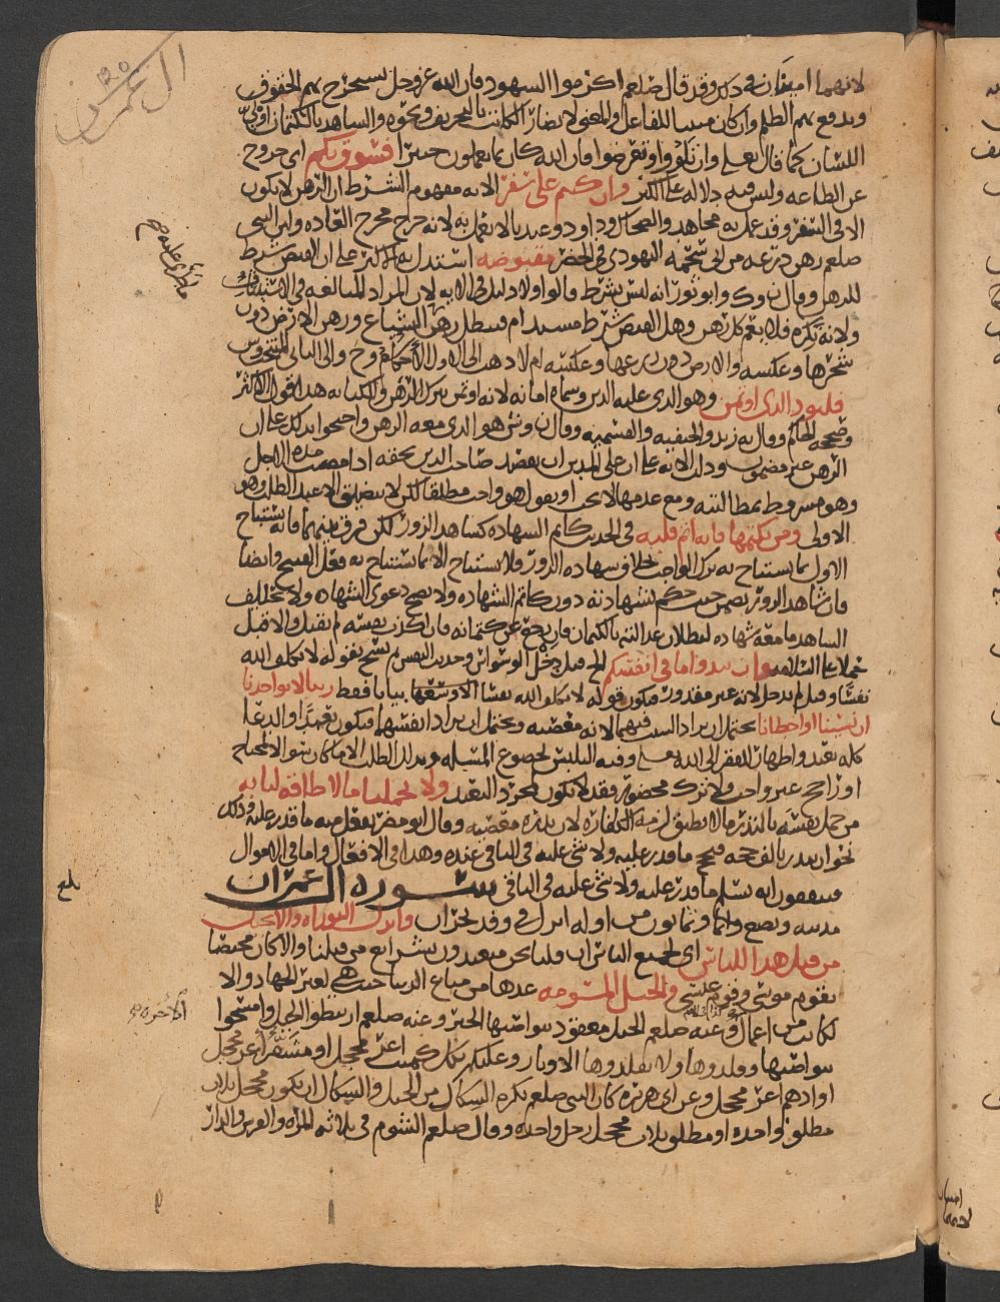 ال عمران
١٢٥
لانهما امينان في ذلك وقد قال صلعم اكرموا الشهود فان الله عز وجل يستخرج بهم الحقوق
ويدفع بهم الظلم وان كان مبنيا للفاعل والمعنى لا يضار الكاتب بالتحريف ونحوه والشاهد بالكتمان او لي
اللسان كما قال تعلى وان تلووا او تعرضوا فان الله كان بما تعملون خبيرا فسوق بكم اي خروج
عن الطاعه وليس فيه دلاله على الكبر وان كنتم على سفر الايه مفهوم الشرط ان الرهن لا يكون
الا في السفر وقد عمل به مجاهد والضحاك وداود وعندنا لا يعمل به لانه خرج مخرج العاده ولان النبي
صلعم رهن درعه من ابي شحمه اليهودي في الحضر مقبوضه استدل به الاكثر على ان القبض شرط
للرهن وقال ن وك وابو ثور انه ليس بشرط قالوا ولا دليل في الايه لان المراد المبالغه في الاستيثاق
ولانه نكره فلا يعم كل رهن وهل القبض شرط مستدام فيبطل رهن المشاع ورهن الارض دون
شجرها وعكسه والارض دون زرعها وعكسه ام لا ذهب الى الاول الاحكام وح والى الثاني
فليود الذي اوتمن وهو الذي عليه الدين وسماه امانه لانه اوتمن بترك الرهن والكتابه هذا قول الاكثر
وصححه الحاكم وقال به زيد والحنفيه والقسميه وقال ن وش هو الذي معه الرهن واحتجوا بذلك على ان
الرهن غير مضمون ودلت الايه على ان على المدين ان يقصد صاحب الدين بحقه اذا مضت مده الاجل
وهو مشروط بمطالبته ومع عدمها لا يجب او يقول هو واجب مطلقا لكن لا يتضيق الا عند الطلب وهو
الاولى ومن يكتمها فانه اثم قلبه في الحديث كاتم الشهاده كشاهد الزور لكن فرق بينهما فانه يستباح
الاول بما يستباح به ترك الواجب بخلاف شهاده الزور فلا يستباح الا بما يستباح به فعل القبيح وايضا
فان شاهد الزور يضمن حيث حكم بشهادته دون كاتم الشهاده ولا تصح دعوى الشهاده ولا تحليف
الشاهد ما معه شهاده لبطلان عدالته بالكتمان فان رجع عن كتمانه فان اكذب نفسه لم يقبل والا قبل
حملا على السلامه وان تبدوا ما في انفسكم الخ قيل دخل الوسواس وحديث النفس ثم نسخ بقوله لا يكلف الله
نفسا وقيل لم يدخل لانه غير مقدور فيكون قوله لا يكلف الله نفسا الا وسعها بيانا فقط ربنا لا تواخذنا
ان نسينا او اخطانا يحتمل ان يراد السبب فيهما لانه معصيه ويحتمل ان يراد انفسهما فيكون تعبدا والدعا
كله تعبد واظهار للفقر الى الله تعلى وفيه التلبس بخضوع المسئله وبذل الطلب الا ما كان
او راجع غير واجب ولا ترك محضور فقد لا يكون لمجرد التعبد ولا تحملنا ما لا طاقه لنا به
من حمل نفسه بالنذر ما لا يطيق لزمه الكفاره لان نذره معصيه وقال ابو مضر يفعل منه ما قدر عليه وذلك
نحو ان ينذر بالف حجه فيحج ما قدر عليه ولا شي عليه في الباقي عنده وهذا في الافعال واما في الاموال
فيتفقون انه يسلم ما قدر عليه ولا شي عليه في الباقي سوره ال عمران
مدنيه ونصع وانما وثمانون من اوله انزل في وفد نجران وانزل التوراه والانجيل
من قبل هدا للناس اي لجميع الناس ان قلنا نحن متعبدون بشرايع من قبلنا والا كان مختصا
بقوم موسى وقوم عيسى والخيل المسومه عدها من متاع الدنيا حيث هي لغير الجهاد والا
لكانت من اعمال الاخره وعنه صلعم الخيل معقود بنواصيها الخير وعنه صلعم ارتبطوا الخيل وامسحوا
بنواصيها وقلدوها ولا تقلدوها الاوتار وعليكم بكل كميت اغر محجل او اشقر اغر محجل
او ادهم اغر محجل وعن ابي هريره كان النبي صلعم يكره الشكال من الخيل والشكال ان يكون محجل ثلاث
مطلوق واحده او مطلوق ثلاث محجل رجل واحده وقال صلعم الشوم في ثلاثه المراه والفرس والدار
بلغ
الاخره صح